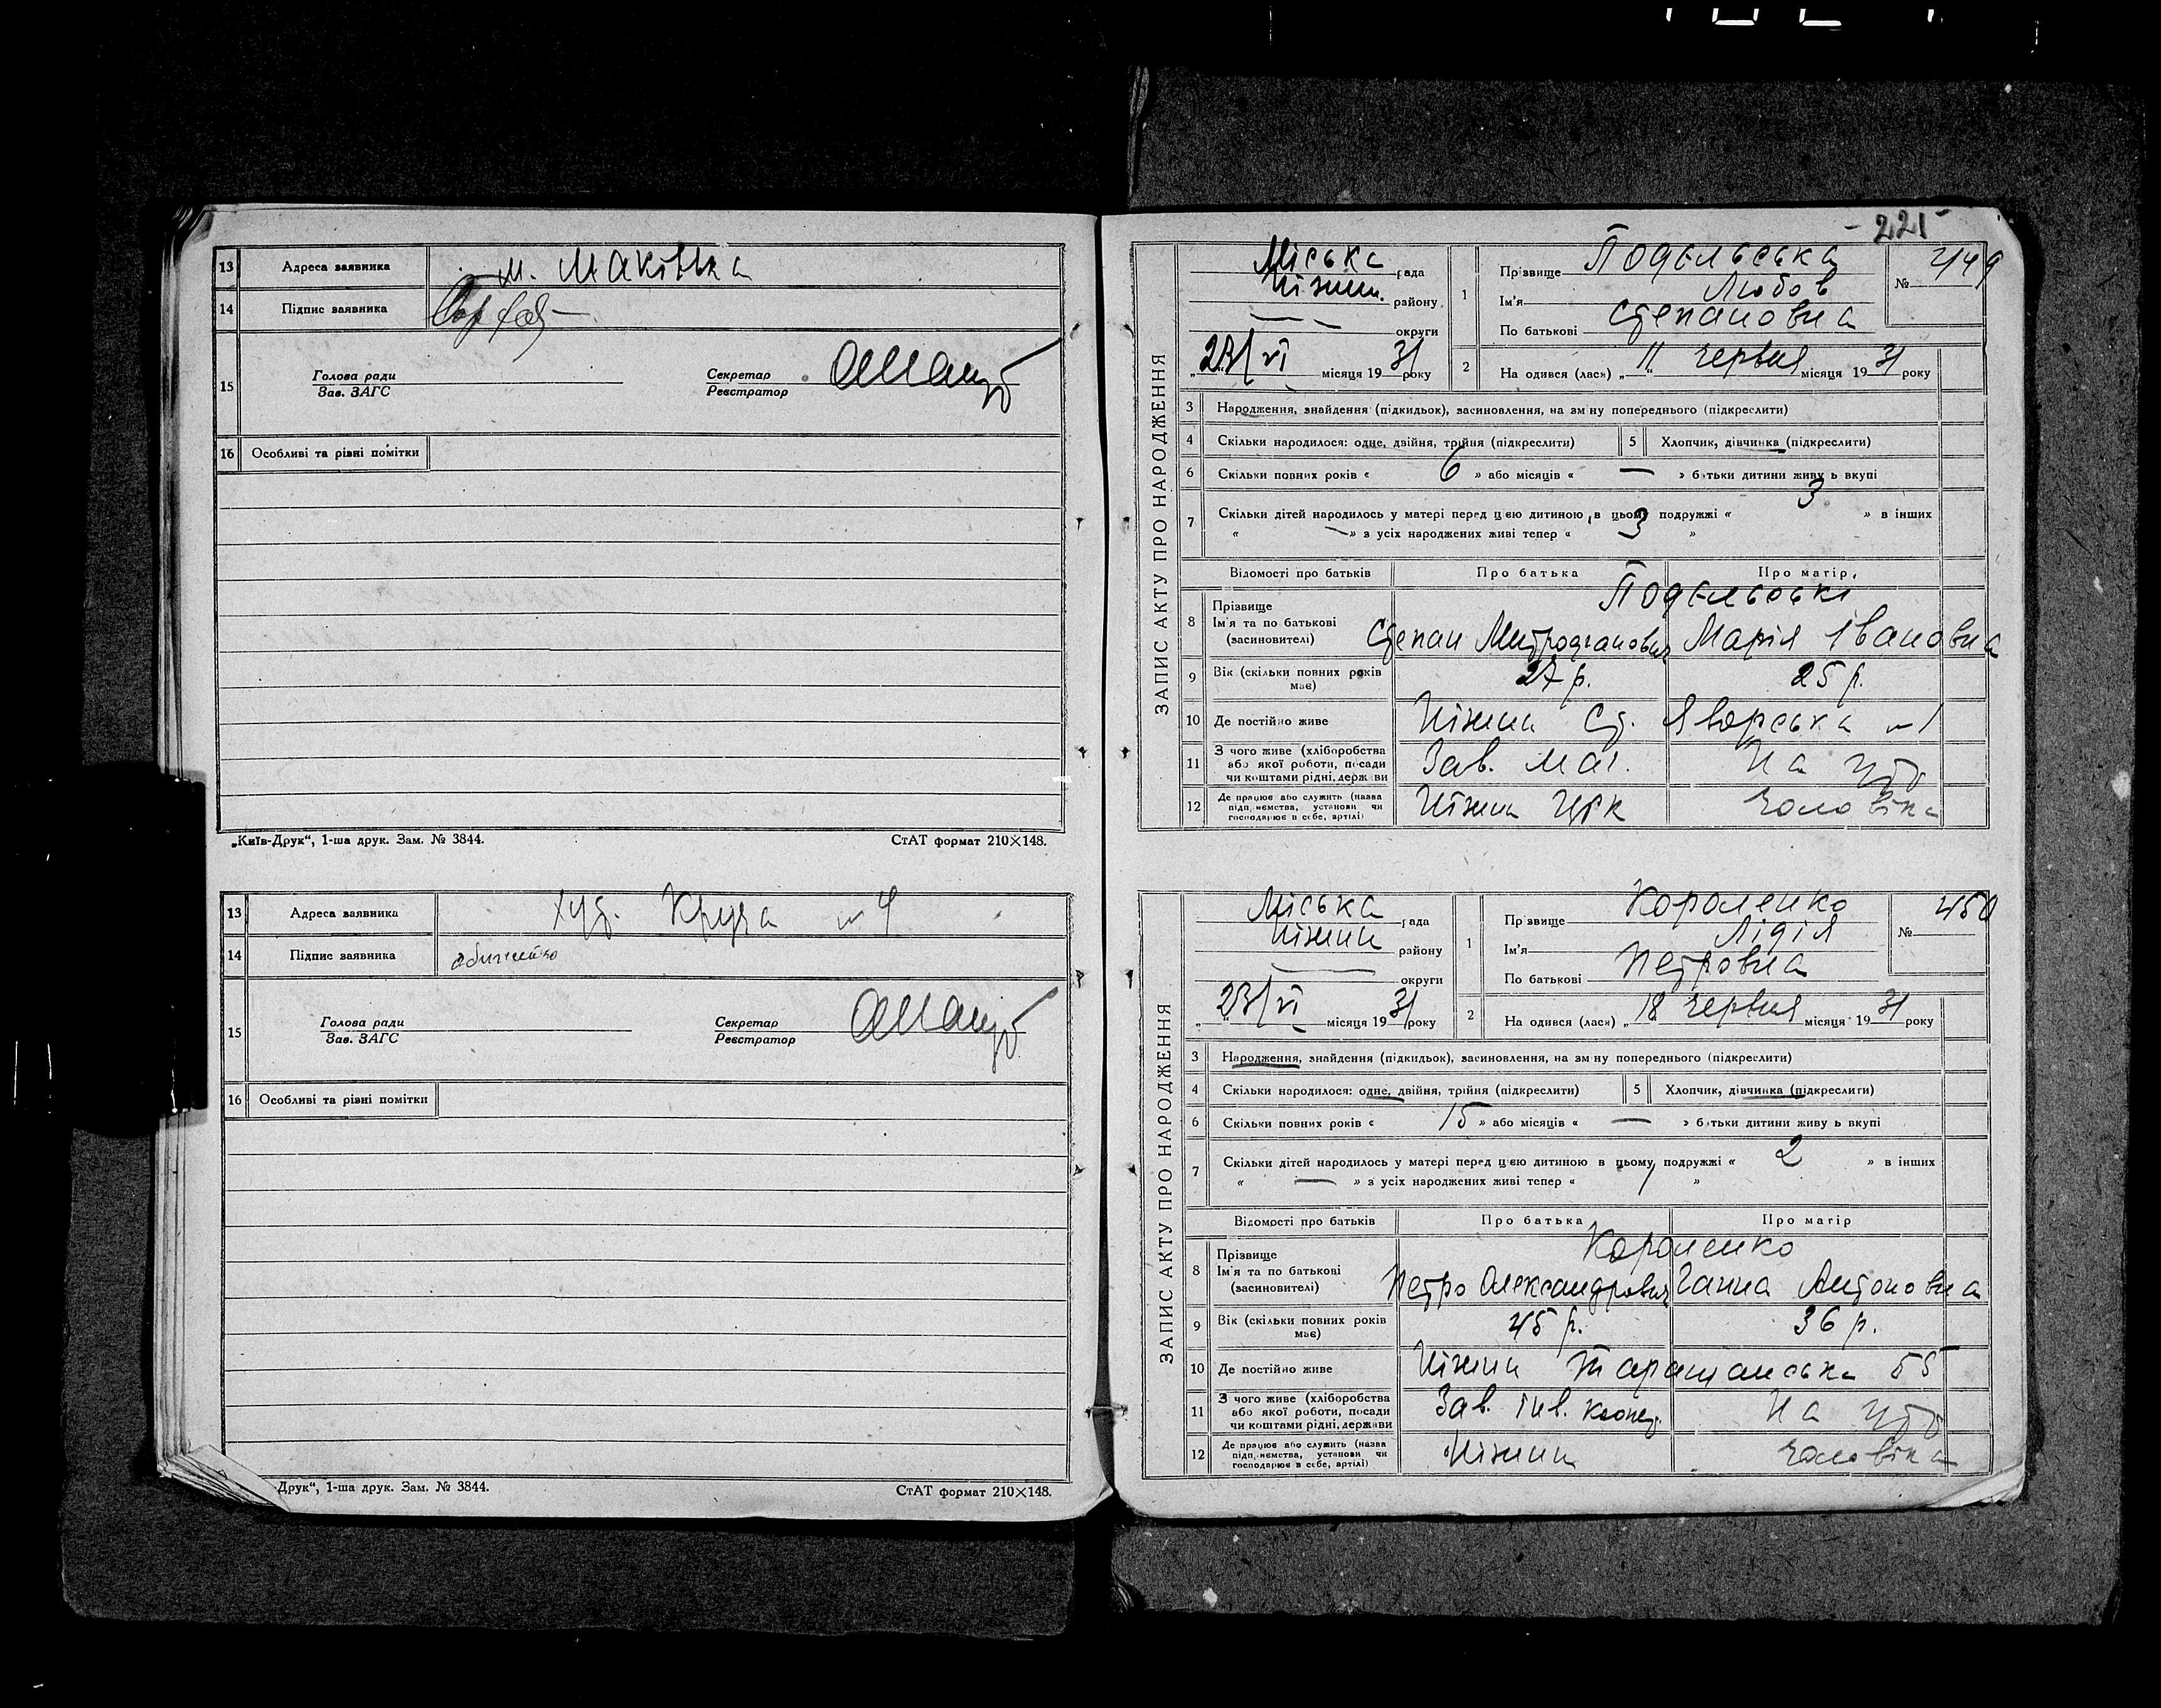 13 Адреса заявника м. Маківка
14 Підпис заявника
15 Голова ради
Зав. ЗАГС
Секретар
Реєстратор
16 Особливі та різні помітки
„Київ-Друк“, 1-ша друк. Зам. № 3844. СтАТ формат 210×148.
13 Адреса заявника хут. Круча № 4
14 Підпис заявника
15 Голова ради
Зав. ЗАГС
Секретар
Реєстратор
16 Особливі та рівні помітки
Друк“, 1-ша друк. Зам. № 3844. СтАТ формат 210×148.
- 221
ЗАПИС АКТУ ПРО НАРОДЖЕННЯ
Міська рада
Ніжин. району
округи
„23/VI місяця 1931 року
1 Прізвище Подільська
Ім'я Любов
По батькові Степановна
№ 449
2 На одився (лася) „11“ червня місяця 1931 року
3 Народження, знайдення (підкидьок), засиновлення, на зміну попереднього (підкреслити)
4 Скільки народилося: одне, двійня, трійня (підкреслити) 5 Хлопчик, дівчинка (підкреслити)
6 Скільки повних років « 6 » або місяців « — » батьки дитини живуть вкупі
7 Скільки дітей народилось у матері перед цією дитиною, в цьому подружжі « 3 » в інших
« — » з усіх народжених живі тепер « 3 »
Відомості про батьків Про батька Про матір
8 Прізвище
Ім'я та по батькові
(засиновителі)
Подільські
Степан Митрофанович Марія Івановна
9 Вік (скільки повних років має) 27 р. 25 р.
10 Де постійно живе Ніжин Ст. Яворська № 1
11 З чого живе (хліборобства
або якої роботи, посади
чи коштами рідні, держави
Зав. маг. На утр
12 Де працює або служить (назва
підприємства, установи чи
господарює в себе, артілі)
Ніжин ЦРК чоловіка
ЗАПИС АКТУ ПРО НАРОДЖЕННЯ
Міська рада
Ніжин району
округи
„23/VI місяця 1931 року
1 Прізвище Короленко
Ім'я Лідія
По батькові Петровна
№ 450
2 На одився (лася) „18“ червня місяця 1931 року
3 Народження, знайдення (підкидьок), засиновлення, на зміну попереднього (підкреслити)
4 Скільки народилося: одне, двійня, трійня (підкреслити) 5 Хлопчик, дівчинка (підкреслити)
6 Скільки повних років « 15 » або місяців « — » батьки дитини живуть вкупі
7 Скільки дітей народилось у матері перед цією дитиною в цьому подружжі « 2 » в інших
« — » з усіх народжених живі тепер « 1 »
Відомості про батьків Про батька Про матір
8 Прізвище
Ім'я та по батькові
(засиновителі)
Короленко
Петро Олександрович Ганна Антоновна
9 Вік (скільки повних років має) 45 р. 36 р.
10 Де постійно живе Ніжин Таращанська 55
11 З чого живе (хліборобства
або якої роботи, посади
чи коштами рідні, держави
Зав. інв. кооп. На утр
12 Де працює або служить (назва
підприємства, установи чи
господарює в себе, артілі)
Ніжин чоловіка